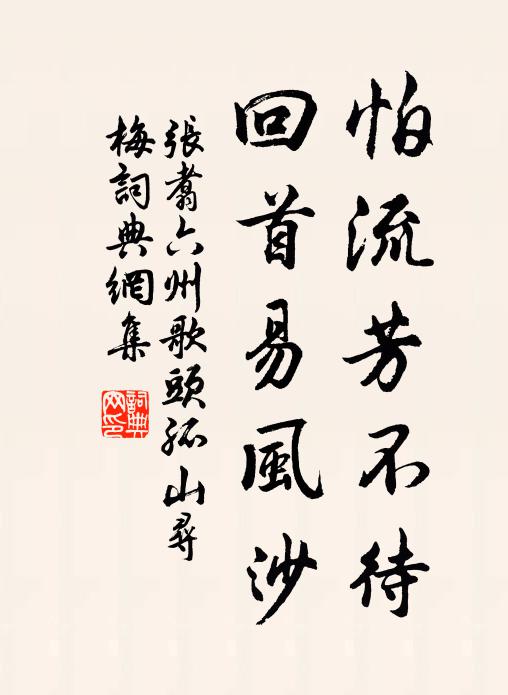 怕流芳不待
回首易風沙
張翥六州歌頭孤山尋
梅詞典網集
詞典網印